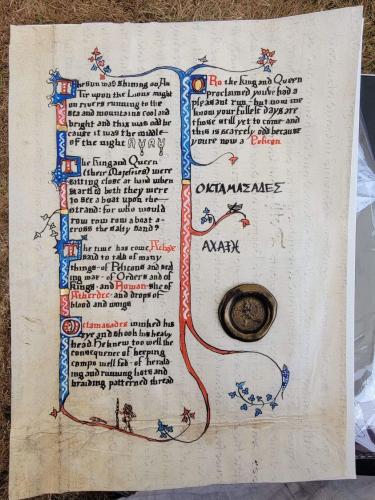 The Sun was shining on An
Tir upon the Lions might
on rivers running to the
sea and mountains cool and
bright and this was odd be
cause it was the middle
of the night
The King and Queen
(their Majesties) were
sitting close at hand when
startled both they were
to see a boat upon the
strand: for who would
row row row a boat a-
cross the salty sand?
The time has come Achaxe
said to talk of many
things - of Pelicans and seal
ing wax - of Orders and of
Kings - and Rowan - she of
Aberdee - and drops of
blood and wings
Octamasades winked his
eye and shook his heavy
head He knew too well the
consequence of keeping
camps well fed - of herald-
ing and running lists and
braiding patterned thread
O Ro the King and Queen
proclaimed you've had a
pleasant run - but now we
know your fullest days are
those still yet to come - and
this is scarcely odd because
you're now a Pelican
ΟΚΤΑΜΑΣΑΔΕΣ